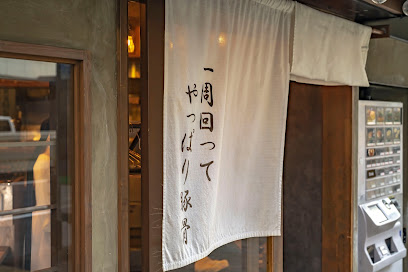 一周回って
やっぱり豚骨